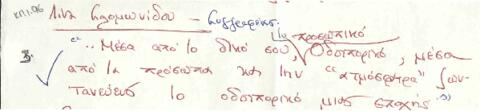 Λίνα Σολομωνίδου - Συγγραφέας.
το προσωπικό
3. "..Μέσα από το δικό σου, Οδοιπορικό, μέσα
από τα πρόσωπα και την "ατμόσφαιρα" ζων-
τανεύεις το οδοιπορικό μιας εποχής."